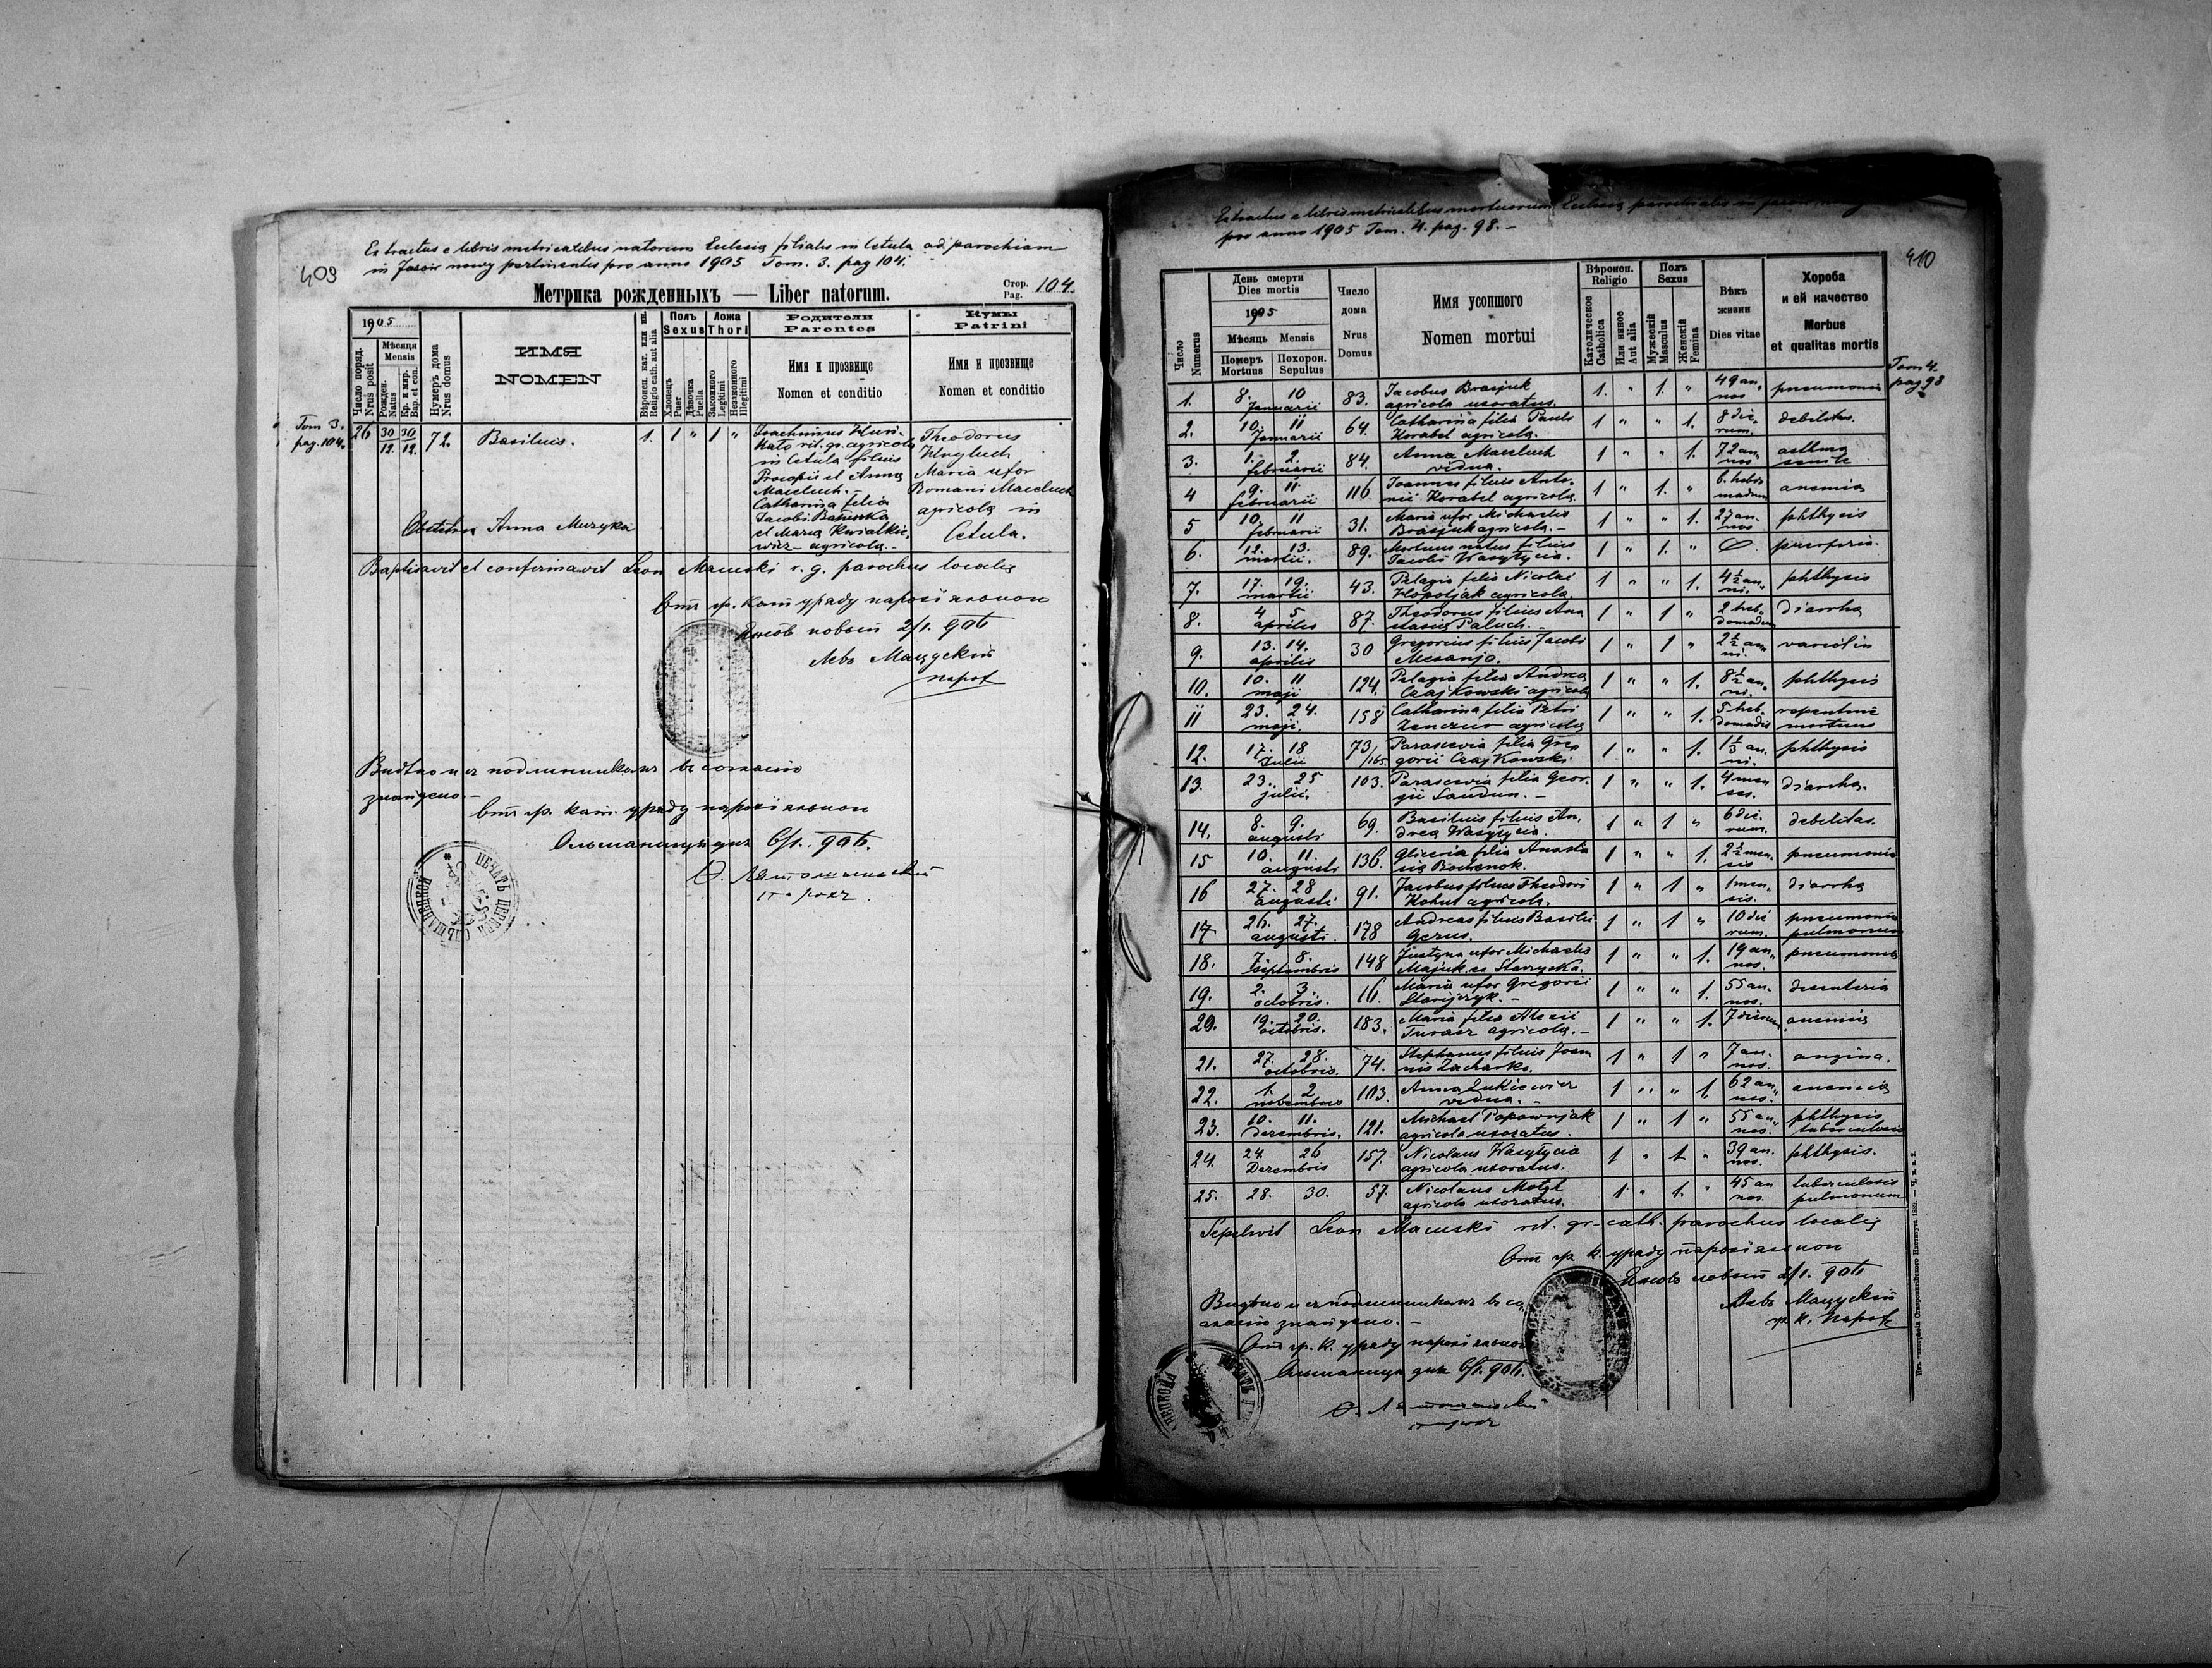 Extractus e libris metricalibus natorum Eclesiæ filialis in Cetula ad parochiam
in Jasów nowy pertinentis pro anno 1905 Tom. 3. pag 104.
409
Метрика рожденныхъ — Liber natorum.
Стор. Pag. 104.
1905
Число поряд. Nrus posit
Мѣсяця Mensis
Рожден. Natus
Кр. и мѵр. Bap. et con.
Нумеръ дома Nrus domus
ИМЯ
NOMEN
Вѣроисп. кат. или ин. Religio cath. aut alia
Полъ Sexus
Хлопецъ Puer
Дѣвочка Puella
Ложа Thori
Законного Legitimi
Незаконного Illegitimi
Родители
Parentes
Имя и прозвище
Nomen et conditio
Кумы
Patrini
Имя и прозвище
Nomen et conditio
Tom 3.
pag. 104.
26 30/12. 30/12. 72. Basilius. 1. 1 " 1 "
rit. gr. agricola
in Cetula filius
Procopii et Anna
Maceluch. -
Catharina filia
Jacobi
et Maria Kwiatkie-
wicz - agricola. -
Theodorus
Maria uxor
Romani Maceluch
agricola in
Cetula.
Obstetrix Anna Muzyka
Baptisavit et confirmavit Leon Macuski r. g. parochus localis
Отъ гр. кат уряду парохіяльного
Ясѣвъ новый 2/1. 906
Левъ Мацускій
парох
Видѣно и съ подлинникомъ въ согласію
знайдено. -
Отъ гр. кат. уряду парохіяльного
Ольшаниця дня 6/1. 906.
Extractus e libris metricalibus mortuorum Eclesiæ parochialis in
pro anno 1905 Tom. 4. pag. 98. -
410
Число Numerus
День смерти
Dies mortis
1905
Мѣсяць Mensis
Померъ Mortuus
Похорон. Sepultus
Число
дома
Nrus
Domus
Имя усопшого
Nomen mortui
Вѣроисп.
Religio
Католическое Catholica
Или инное Aut alia
Полъ
Sexus
Мужескій Masculus
Женскій Femina
Вѣкъ
жизни
Dies vitae
Хороба
и ей качество
Morbus
et qualitas mortis
Tom 4.
pag 98
1. 8. 10 Januarii 83. Jacobus Brasjuk agricola uxoratus. 1. " 1. " 49 annos pneumonia
2. 10. 11 Januarii 64. Catharina filia Pauli Korabel agricola. 1 " " 1. 8 dierum. debilitas.
3. 1. 2. februarii 84. Anna Maceluch vidua. 1 " " 1. 72 annos asthma senile
4 9. 11. februarii 116 Joannes filius Antonii Korabel agricola 1 " 1. " 6. hebdomadum anemia
5 10. 11 februarii 31. Maria uxor Michaelis Brasjuk agricola. - 1 " " 1. 27 annos phthysis
6. 12. 13. martii. 89. Mortuus natus filius Jacobi Wasytycia. 1 " 1. "
7. 17. 19. martii 43. Pelagia filia Nicolai Klopotjak agricola. 1 " " 1. 4½ anni. phthysis
8. 4 5 aprilis 87. Theodorus filius Anastasia Paluch. - 1 " 1 " 2 hebdomadum diarrha
9. 13. 14. aprilis 30 Gregorius filius Jacobi 1 " 1 " 2½ anni.
10. 10. 11 maji 124. Pelagia filia Andrea Czajkowski agricola 1 " " 1. 8½ anni. phthysis
11 23. 24. maji. 158 Catharina filia Petri agricola 1 " " 1. 5 hebdomadis repentine mortuus
12. 17. 18 Julii 73/165 Parascevia filia Gregorii Czajkowski 1 " " 1. 1⅓ anni. phthysis
13. 23. 25 julii. 103. Parascevia filia Georgii 1 " " 1. 4 menses. diarrha.
14. 8. 9. augusti 69. Basilius filius Andrea Wasytycia. 1 " 1 " 6 dierum. debilitas.
15 10. 11. augusti 136. Gliceria filia Anastasia Bochenok. 1 " " 1. 2½ mensis pneumonia
16 27. 28 augusti 91. Jacobus filius Theodori Kohut agricola. 1 " 1 " 1 mensis. diarrha
17 26. 27. augusti. 178 Andreas filius Basilii Gerus. 1 " 1 " 10 dierum. pneumonia pulmonum
18. 7. 8. septembris 148 Justyna uxor Michaelis Majuk 1 " " 1. 19 annos. pneumonia
19. 2. 3. octobris. 16. Maria uxor Gregorii 1 " " 1. 55 annos. desenteria
20. 19. 20. octobris. 183. Maria filia Alexii agricola. - 1 " " 1. 7 dierum. anemia
21. 27. 28. octobris. 74. Stephanus filius Joannis Zacharko. 1 " 1 " 7 annos. angina.
22. 1. 2 novembris 103. Anna Lukiewicz vidua. - 1 " " 1. 62 annos. anemia
23. 10. 11. Decembris. 121. Michael Popownjak agricola uxoratus. 1 " 1 " 55 annos. phthysis tuberculosis
24. 24. 26 Decembris 157. Nicolaus Wasytycia agricola uxoratus. 1 " 1. " 39 annos. phthysis.
25. 28. 30. 57. Nicolaus Motyl agricola uxoratus. 1. " 1. " 45 annos. tuberculosis pulmonum
Sepelivit Leon Macuski rit. gr. cath. parochus localis
Отъ гр. к. уряду парохіяльного
Ясѣвъ новый 2/1. 906
Левъ Мацускій
гр. к. парох
Видѣно и съ подлинникомъ въ со-
гласію знайдено. -
Отъ гр. к. уряду парохіяльного
Ольшаниця дня 6/1. 906.